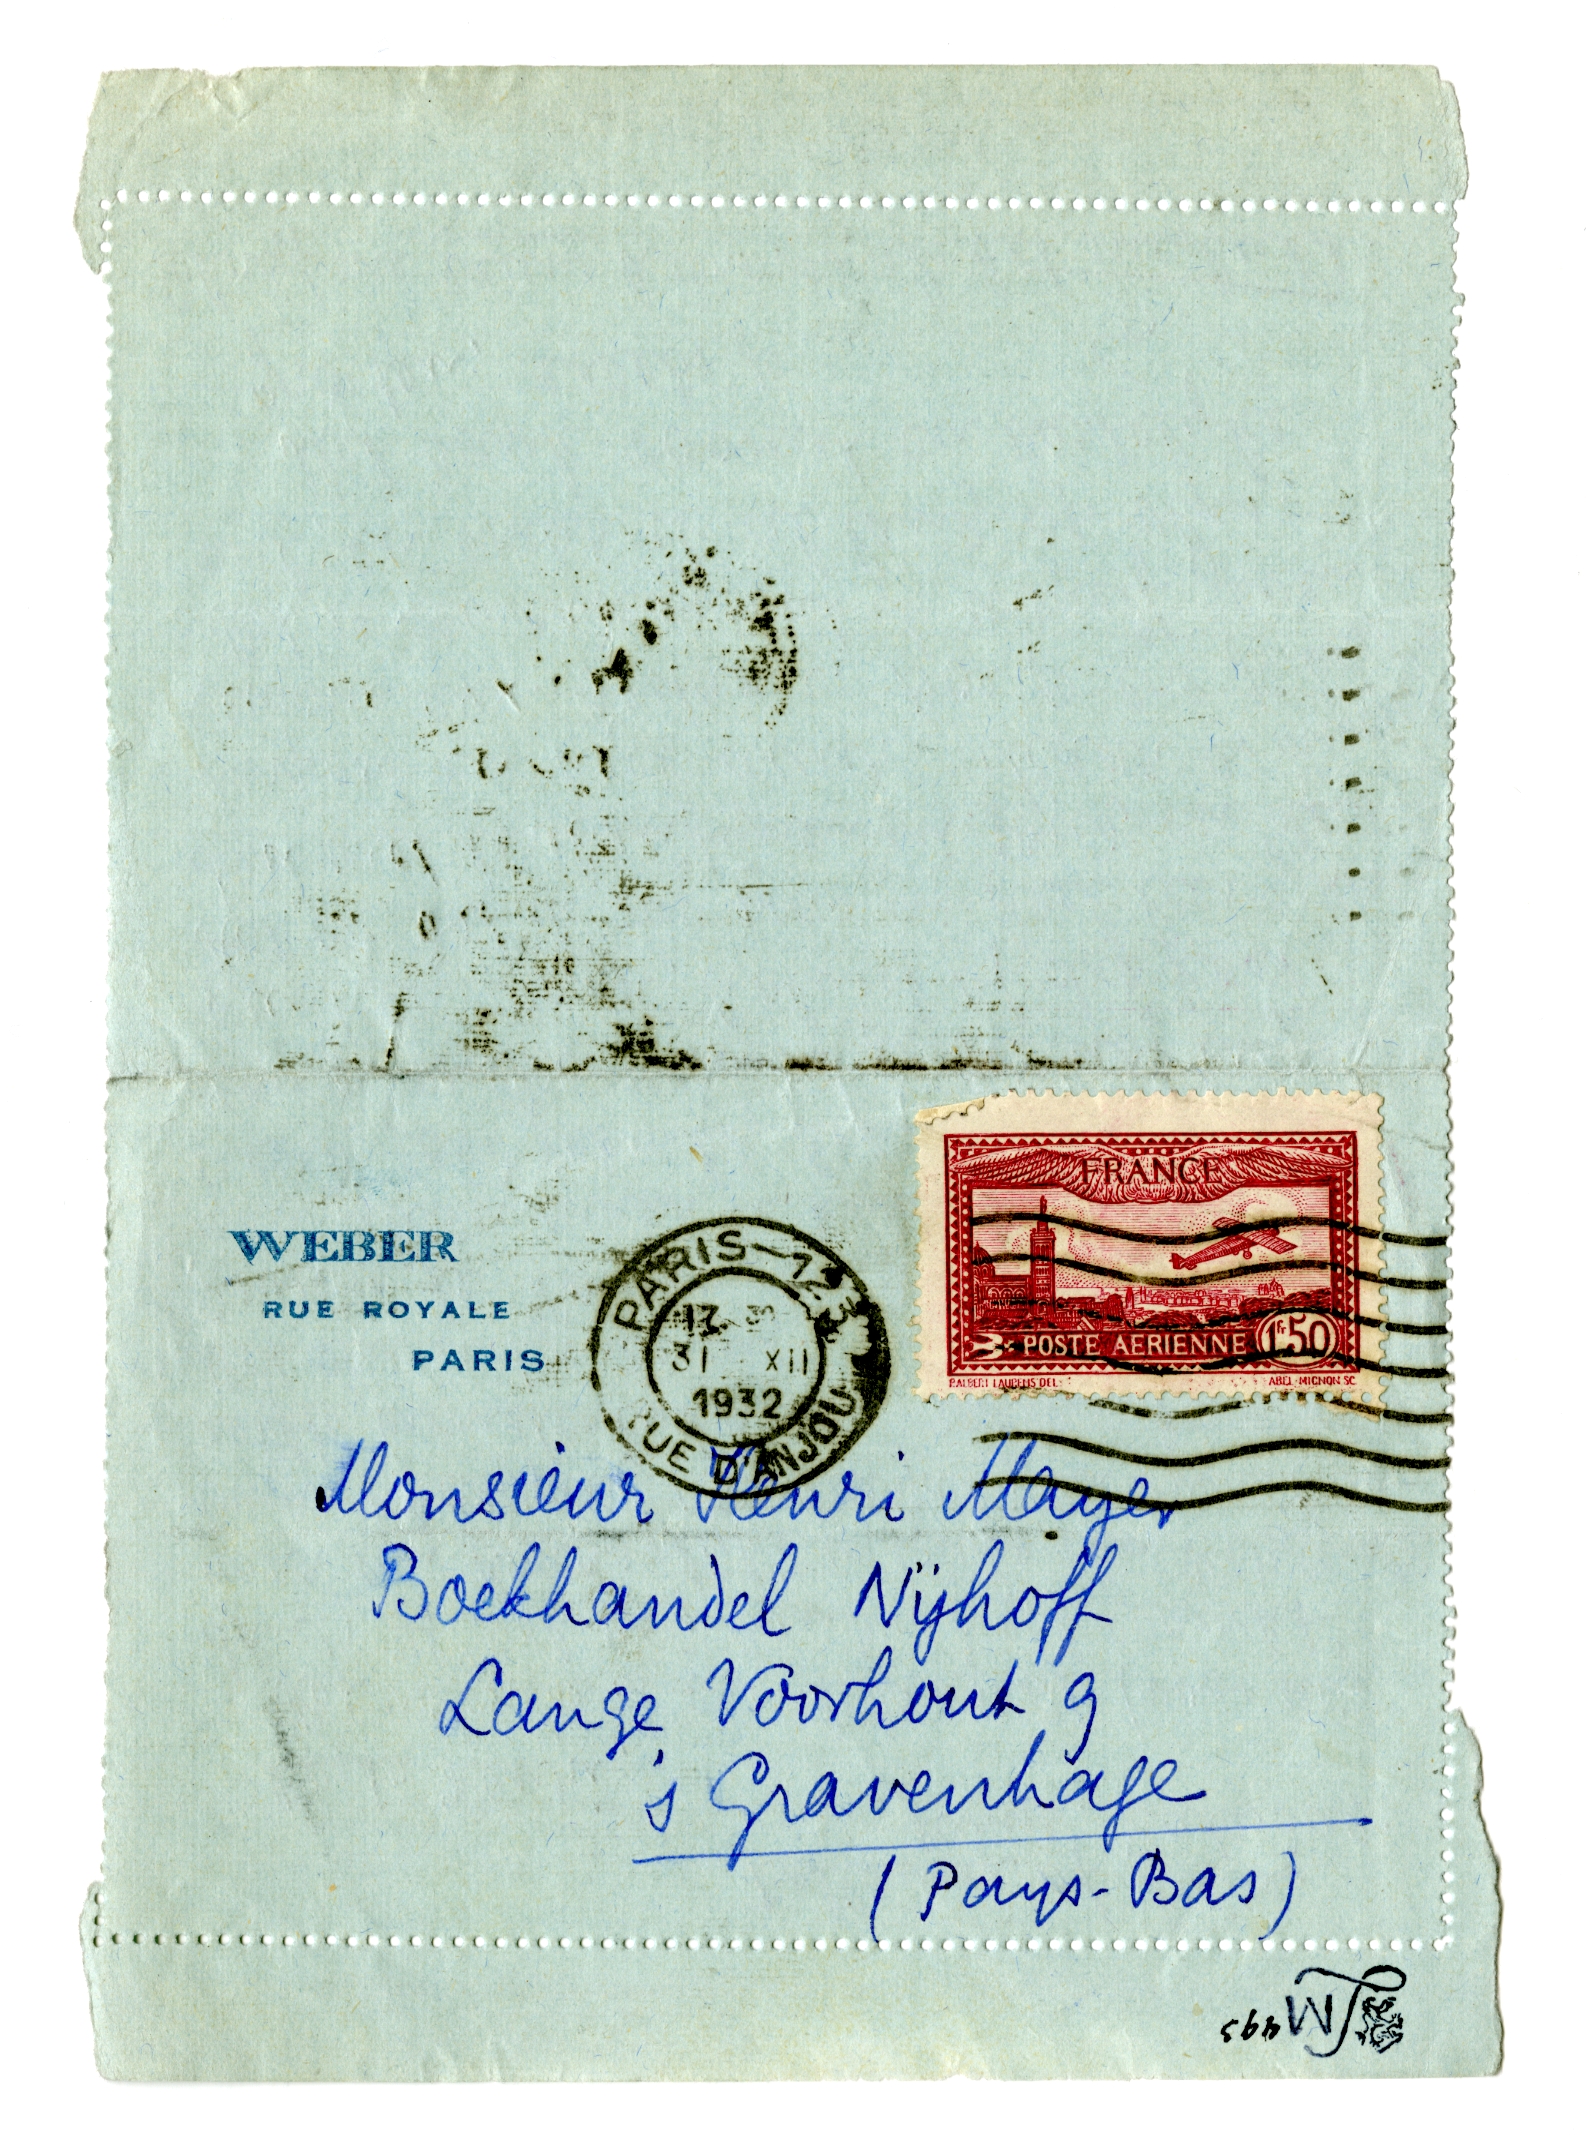 WEBER
RUE ROYALE
PARIS
PARIS - 123
17 30
31 XII
1932
RUE D'ANJOU
FRANCE
POSTE AERIENNE 1fr 50
P. ALBERT LAURENS DEL. ABEL MIGNON SC
Monsieur Henri Mayer
Boekhandel Nijhoff
Lange Voorhout 9
's Gravenhage
(Pays-Bas)